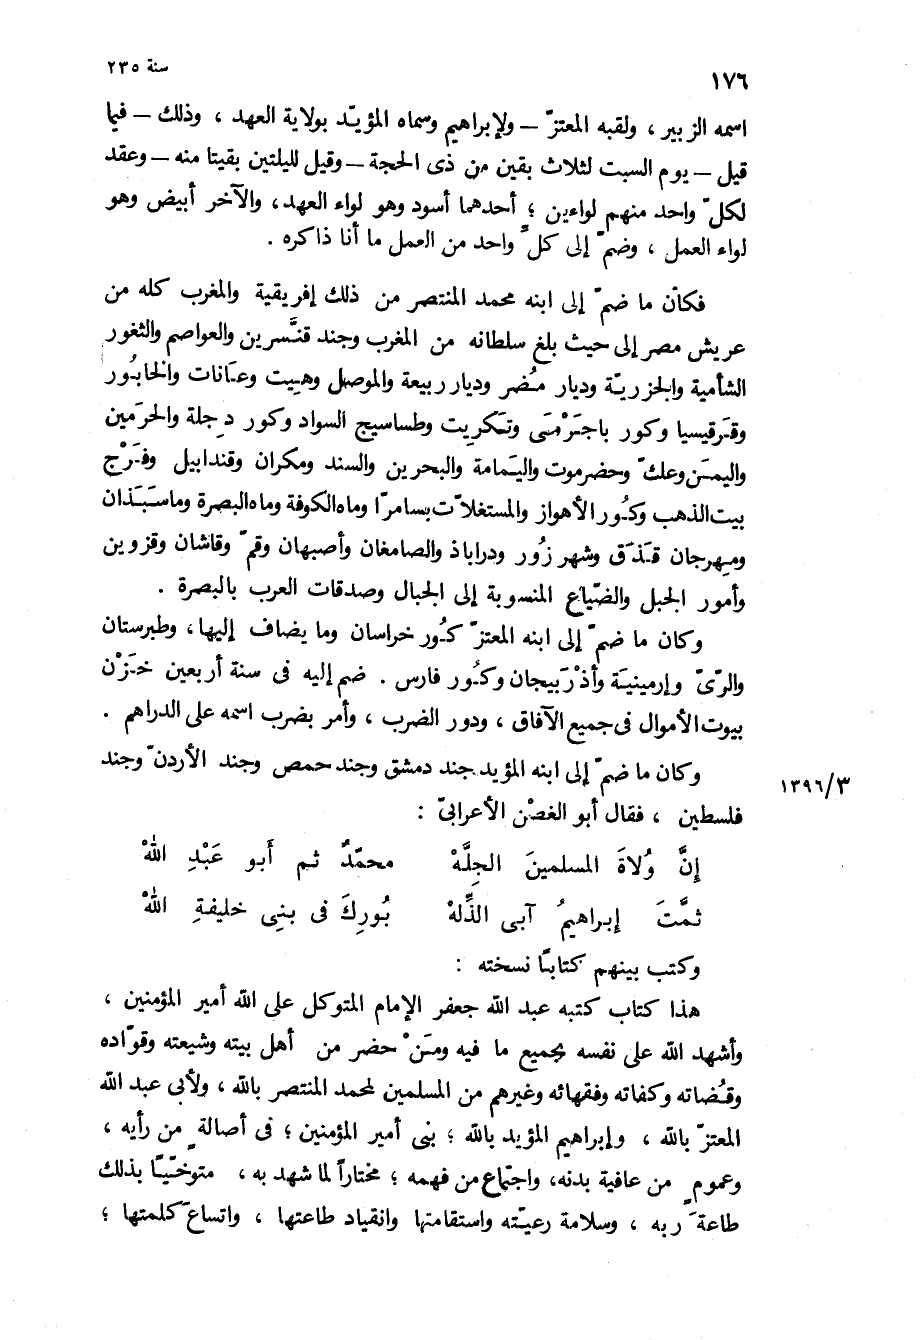 سنة ٢٣٥
١٧٦
اسمه الزبير ، ولقبه المعتزّ – ولإبراهيم وسماه المؤيّد بولاية العهد ، وذلك – فيما
قيل – يوم السبت لثلاث بقين من ذى الحجة – وقيل لليلتين بقيتا منه – وعقد
لكلّ واحد منهم لواءين ؛ أحدهما أسود وهو لواء العهد، والآخر أبيض وهو
لواء العمل ، وضمّ إلى كلّ واحد من العمل ما أنا ذاكره .
فكان ما ضمّ إلى ابنه محمد المنتصر من ذلك إفريقية والمغرب كله من
عريش مصر إلى حيث بلغ سلطانه من المغرب وجند قنَّسرين والعواصم والثغور
الشأمية والجزريّة وديار مُضر وديار ربيعة والموصل وهيت وعانات والخابُور
وقَرقيسيا وكور باجَرْمَى وتَكريت وطساسيج السواد وكور دِجلة والحرَمين
واليمَن وعكّ وحضرموت واليَمامة والبحرين والسند ومكران وقندابيل وفَرْج
بيت الذهب وكُور الأهواز والمستغلاّت بسامرّا وماه الكوفة وماه البصرة وماسَبَذان
ومِهرجان قَذَق وشهر زُور ودراباذ والصامغان وأصبهان وقمّ وقاشان وقزوين
وأمور الجبل والضّياع المنسوبة إلى الجبال وصدقات العرب بالبصرة .
وكان ما ضمّ إلى ابنه المعتزّ كُور خراسان وما يضاف إليها، وطبرستان
والرّىّ وإرمينيَة وأذْرَبيجان وكُور فارس . ضم إليه فى سنة أربعين خَزْن
بيوت الأموال فى جميع الآفاق ، ودور الضرب ، وأمر بضرب اسمه على الدراهم .
وكان ما ضمّ إلى ابنه المؤيد جند دمشق وجند حمص وجند الأردنّ وجند
١٣٩٦/٣
فلسطين ، فقال أبو الغصْن الأعرابىّ :
إنَّ وُلاَةَ المسلمينَ الجِلَّهْ محمّدٌ ثم أَبو عَبْدِ اللهْ
ثمَّتَ إبراهيمُ آبى الذِّلهْ بُورِكَ فى بنِى خليفةِ اللهْ
وكتب بينهم كتابًا نسخته :
هذا كتاب كتبه عبد الله جعفر الإمام المتوكل على الله أمير المؤمنين ،
وأشهد الله على نفسه بجميع ما فيه ومَنْ حضر من أهل بيته وشيعته وقوّاده
وقُضاته وكفاته وفقهائه وغيرهم من المسلمين لمحمد المنتصر بالله ، ولأبى عبد الله
المعتزّ بالله ، وإبراهيم المؤيد بالله ؛ بنى أمير المؤمنين ؛ فى أصالةٍ من رأيه ،
وعمومٍ من عافية بدنه، واجتماع من فهمه ؛ مختاراً لما شهد به ، متوخّيًا بذلك
طاعةَ ربه ، وسلامة رعيّته واستقامتها وانقياد طاعتها ، واتساعَ كلمتها ؛